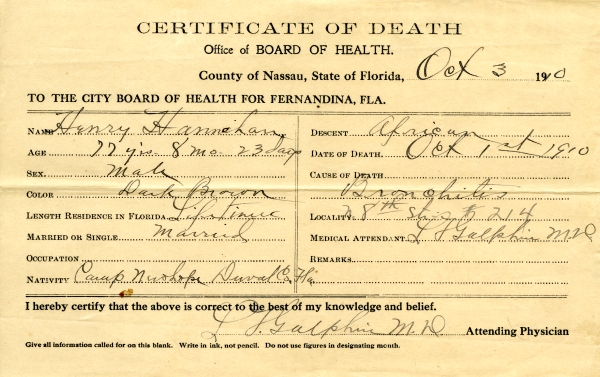 CERTIFICATE OF DEATH
Office of BOARD OF HEALTH.
County of Nassau, State of Florida, Oct 3 1910
TO THE CITY BOARD OF HEALTH FOR FERNANDINA, FLA.
NAME Henry Hannahan
AGE 77 yrs 8 mo 23 days
SEX. Male
COLOR Dark Brown
LENGTH RESIDENCE IN FLORIDA Life time
MARRIED OR SINGLE Married
OCCUPATION
NATIVITY Camp Newhope Duval Co. Fla
DESCENT African
DATE OF DEATH. Oct 1st 1910
CAUSE OF DEATH
Bronchitis
LOCALITY. 8th st B 214
MEDICAL ATTENDANT. Galphin M.D
REMARKS
I hereby certify that the above is correct to the best of my knowledge and belief.
Galphin M.D Attending Physician
Give all information called for on this blank. Write in ink, not pencil. Do not use figures in designating month.